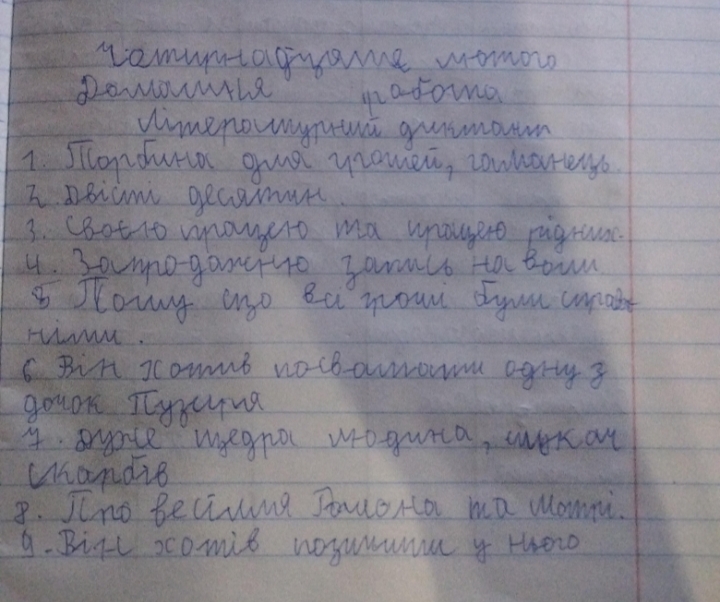 Чотирнадцяте лютого
Домашня работа
Літературний диктант
1. Торбина для грошей, гаманець.
2. Двісті десятин.
3. Своєю працею та працею рідних.
4. Запродажню запись на воли
5 Тому що всі гроші були справж
німи.
6 Він хотив посватати одну з
дочок Пузиря
7. Дуже щедра людина, шукач
скарбів
8. Про весілля Романа та Мотрі.
9. Він хотів позичити у нього